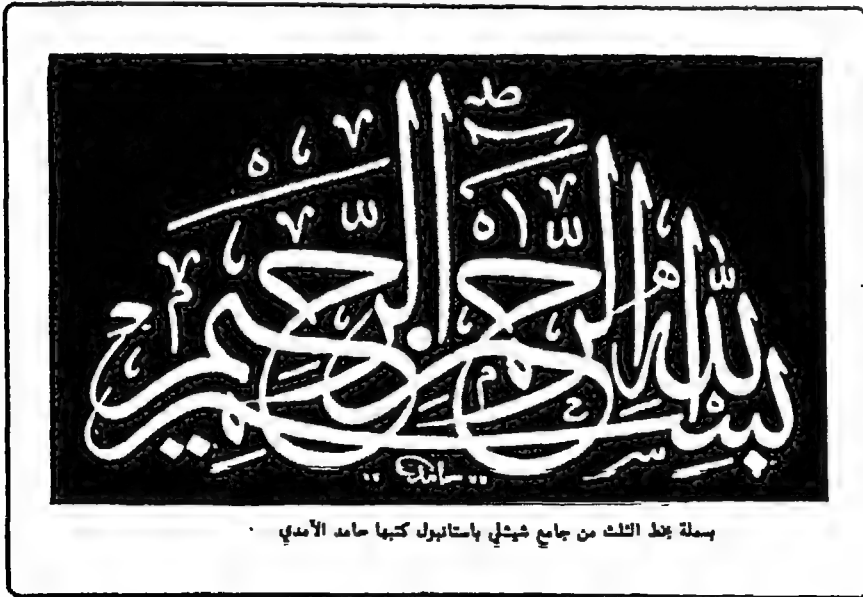 بسم الله الرحمن الرحيم
حامد
بسملة بخط الثلث من جامع شيشلي باستانبول كتبها حامد الأمدي